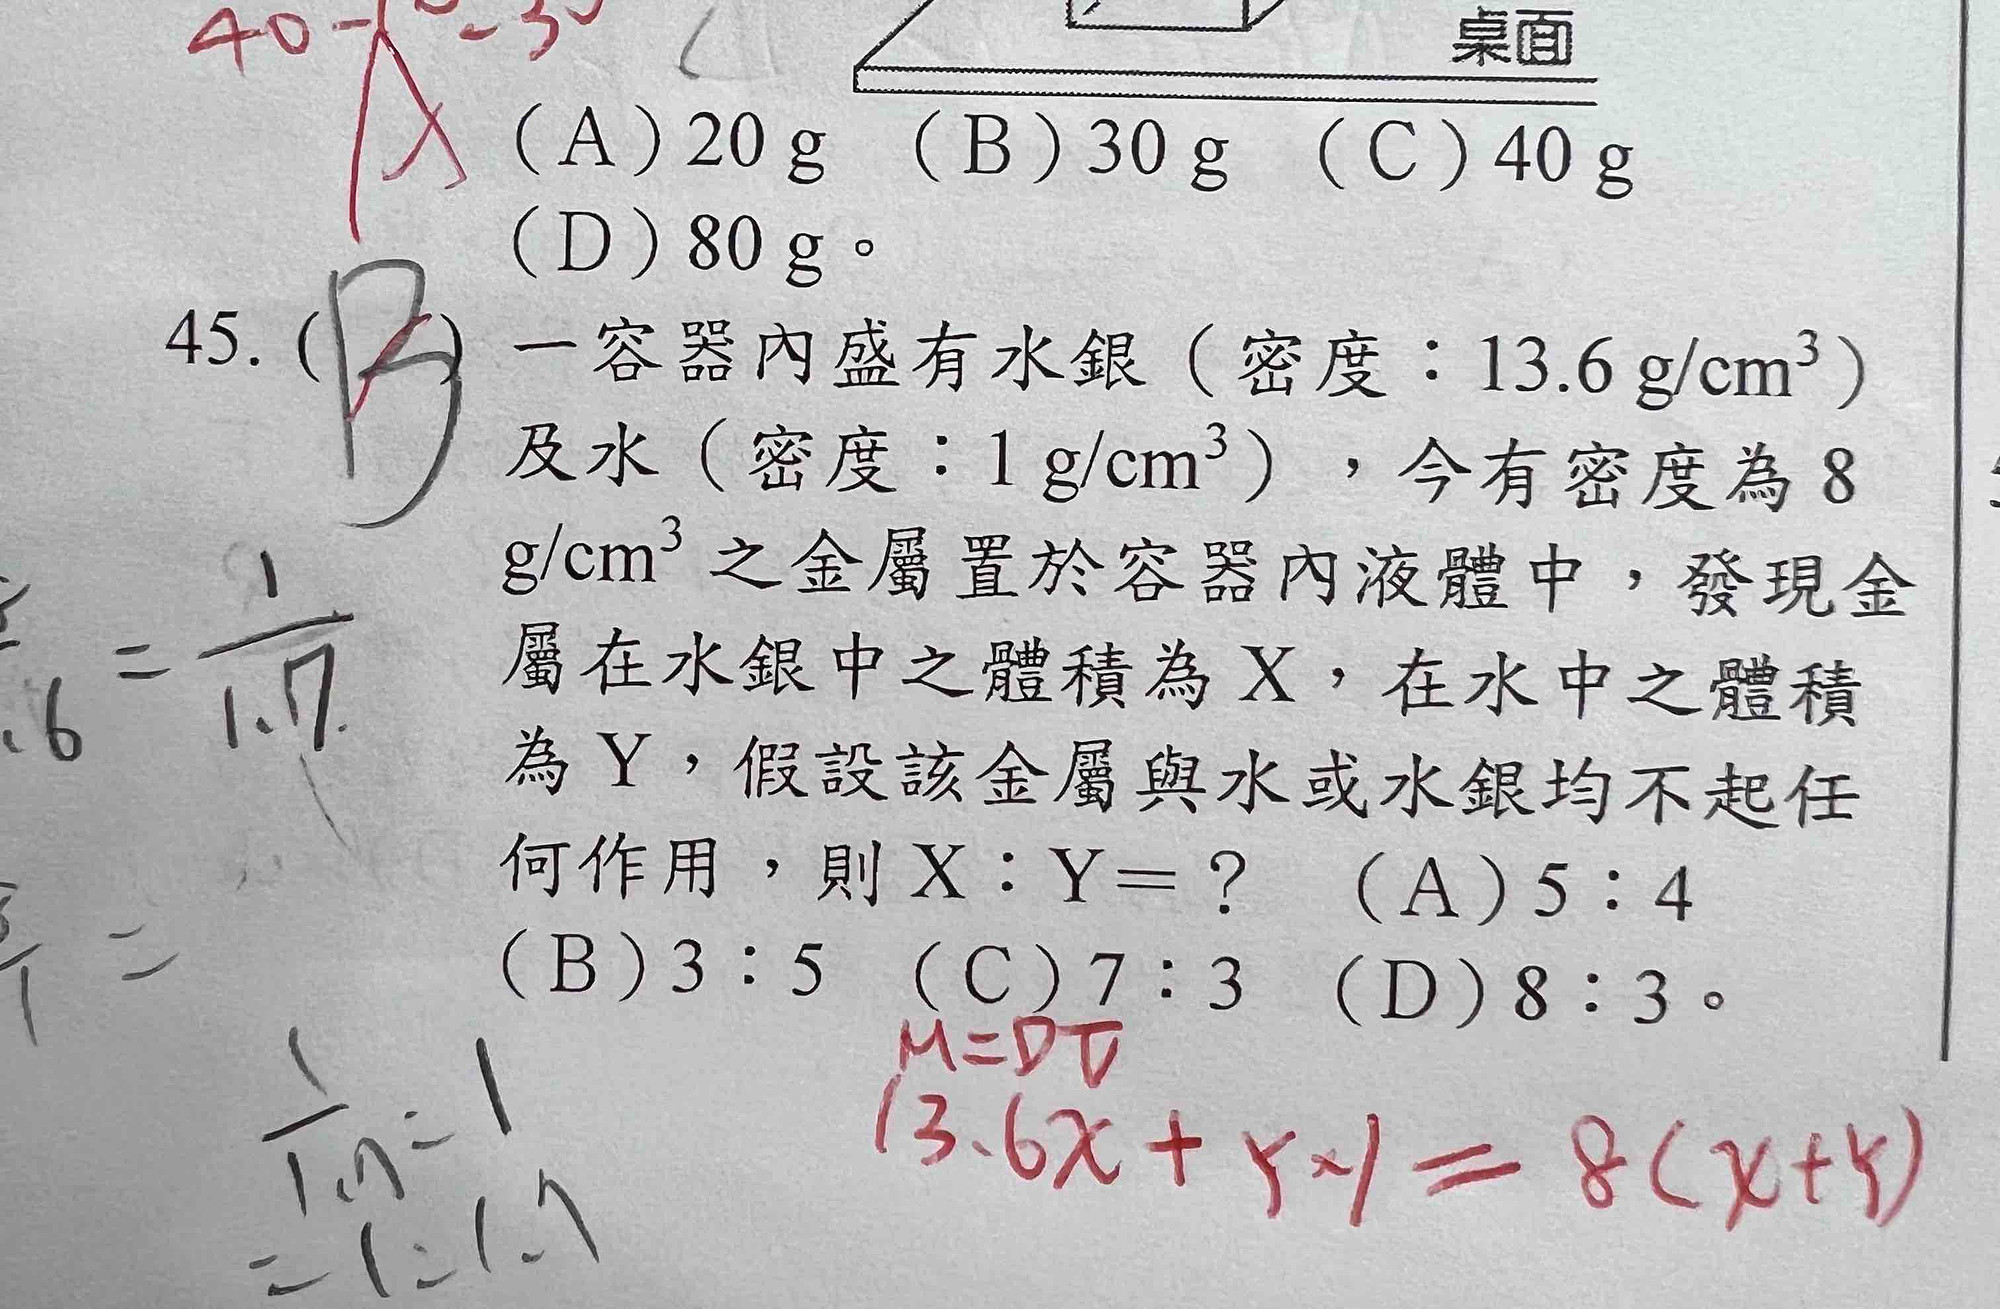 40-
桌面
(A) 20 g (B) 30 g (C) 40 g
(D) 80 g。
45. (B) 一容器內盛有水銀(密度:13.6 g/cm³)
及水(密度:1 g/cm³),今有密度為 8
g/cm³ 之金屬置於容器內液體中,發現金
屬在水銀中之體積為 X,在水中之體積
為 Y,假設該金屬與水或水銀均不起任
何作用,則 X:Y=? (A) 5:4
(B) 3:5 (C) 7:3 (D) 8:3。
.6 = 1/1.7
M=DV
13.6x + Y×1 = 8(x+Y)
1/1.7 = 1
= 1 = 1.7